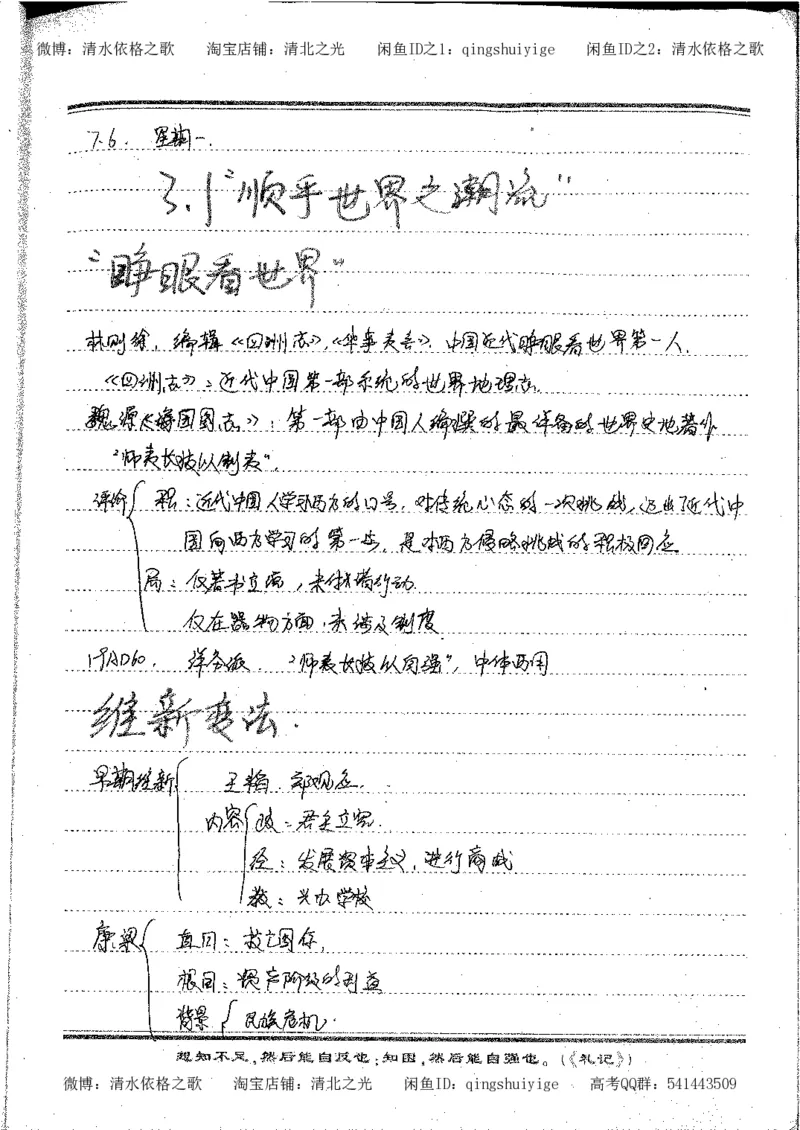 微博：清水依格之歌 淘宝店铺：清北之光 闲鱼ID之1：qingshuiyige 闲鱼ID之2：清水依格之歌
7.6. 星期一.
3.1 "顺乎世界之潮流"
"睁眼看世界"
林则徐，编辑《四洲志》,《华事夷言》. 中国近代睁眼看世界第一人.
《四洲志》：近代中国第一部系统的世界地理志.
魏源《海国图志》：第一部由中国人编撰的最详备的世界史地著作
"师夷长技以制夷".
评价 积：近代中国人学习西方的口号, 对传统心态的一次挑战, 迈出了近代中
国向西方学习的第一步, 是对西方侵略挑战的积极回应
局：仅著书立说，未付诸行动.
仅在器物方面，未涉及制度
19AD60. 洋务派. "师夷长技以自强", 中体西用
维新变法.
早期维新 王韬. 郑观应.
内容 政：君主立宪.
经：发展资本主义, 进行商战
教：兴办学校
康梁 直目：救亡图存,
根目：资产阶级的利益
背景 民族危机.
想知不足,然后能自反也;知困,然后能自强也。(《礼记》)
微博：清水依格之歌 淘宝店铺：清北之光 闲鱼ID：qingshuiyige 高考QQ群：541443509